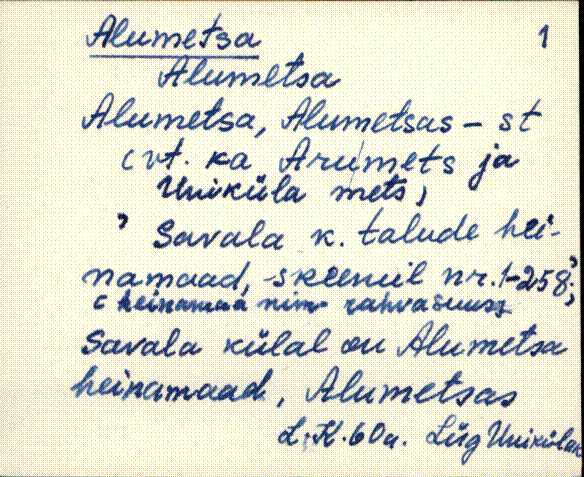 Alumetsa 1
Alumetsa
Alumetsa, Alumetsas – st
(vt. ka Arumets ja
Uniküla mets)
' Savala k. talude hei-
namaad, skeemil nr. 1-258';
(heinamaa nimi rahvasuus)
Savala külal on Alumetsa
heinamaad, Alumetsas
L. K. 60 a. Lüg Uniküla